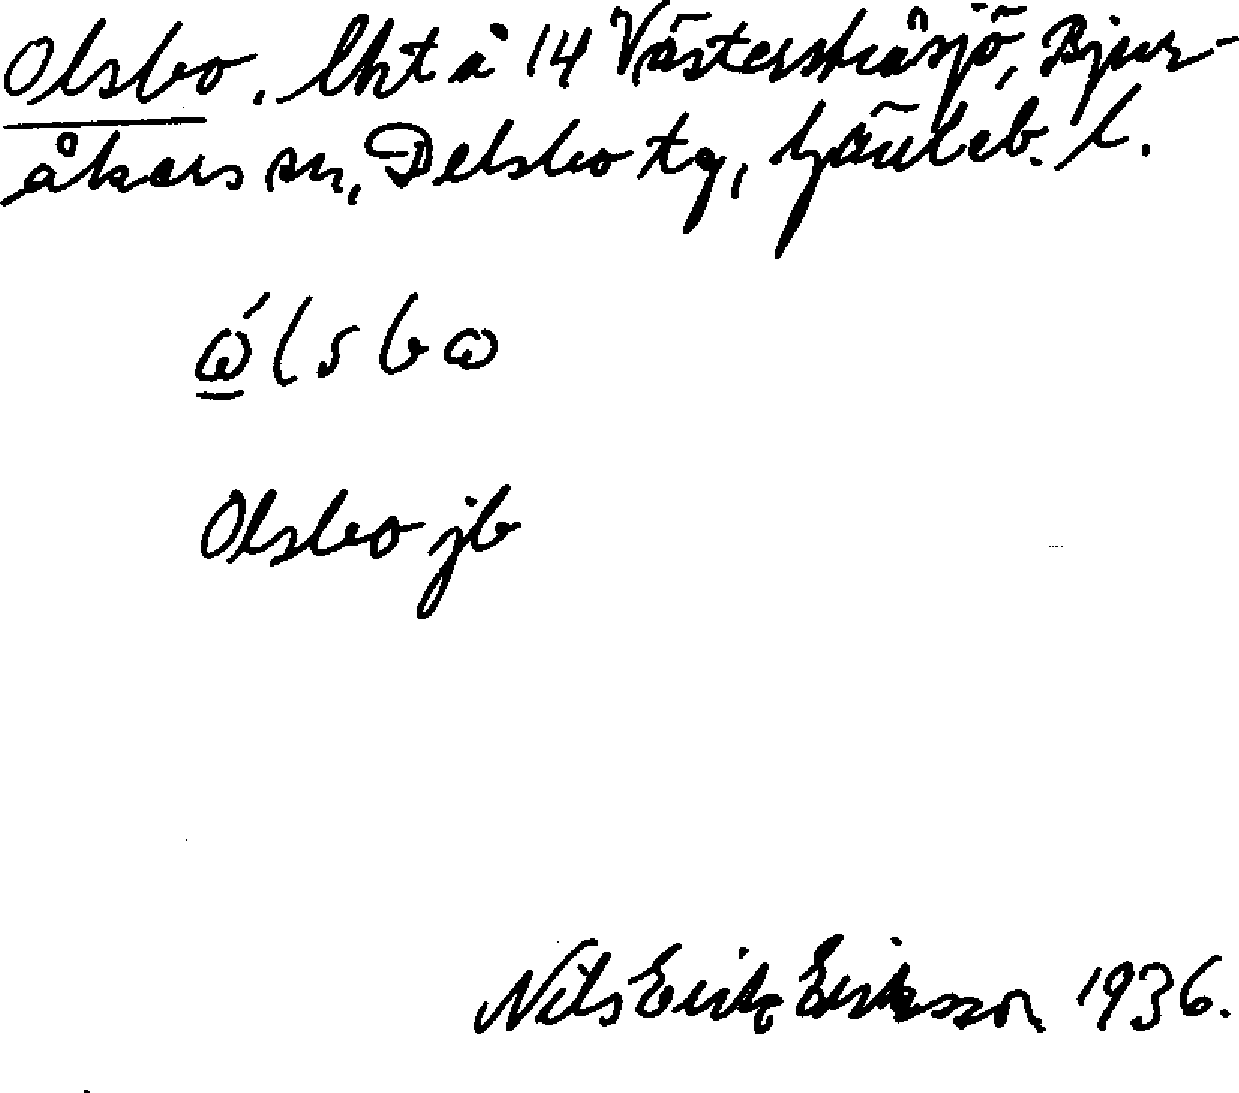 Olsbo. lht å 14 Västerstråsjö, Bjur-
åkers sn, Delsbo tg, Gävleb. l.
ώlsbω
Olsbo jb
Nils Erik Eriksson 1936.